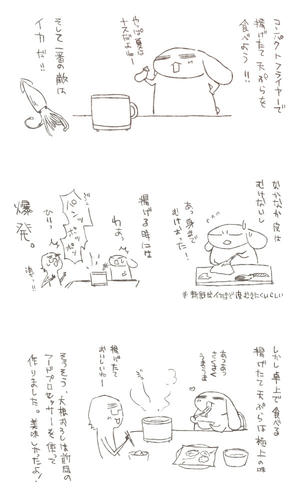 コンパクトフライヤーで
揚げたて天ぷらを
食べよう!!
やっぱ夏は
ナスだよねー
そして一番の敵は
イカだ!!
なかなか皮は
むけないし
あっ身まで
むけちった!
※新鮮なイカほど皮むきにくいらしい
揚げる時には
わぁっ
パンッ
ひぃっ
爆発。
しかし卓上で食べる
揚げたて天ぷらは極上の味
あつあつ
さくさく
うまうま
揚げたて
おいしいねー
そうそう、大根おろしは前回の
フードプロセッサーを使って
作りました。美味しかったよ!